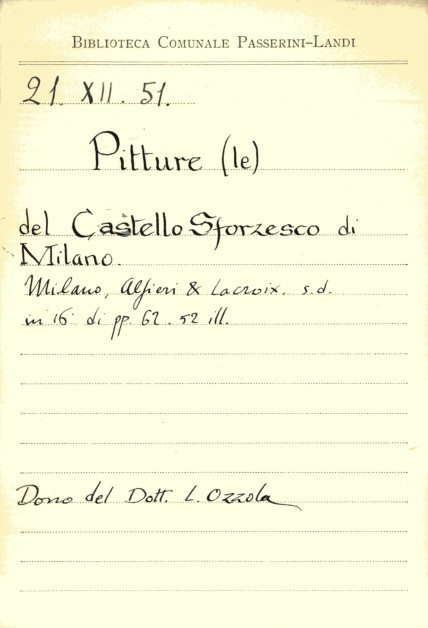 BIBLIOTECA COMUNALE PASSERINI-LANDI
21. XII. 51.
Pitture (le)
del Castello Sforzesco di
Milano.
Milano, Alfieri & Lacroix. s.d.
in 16° di pp. 62. 52 ill.
Dono del Dott. L. Ozzola